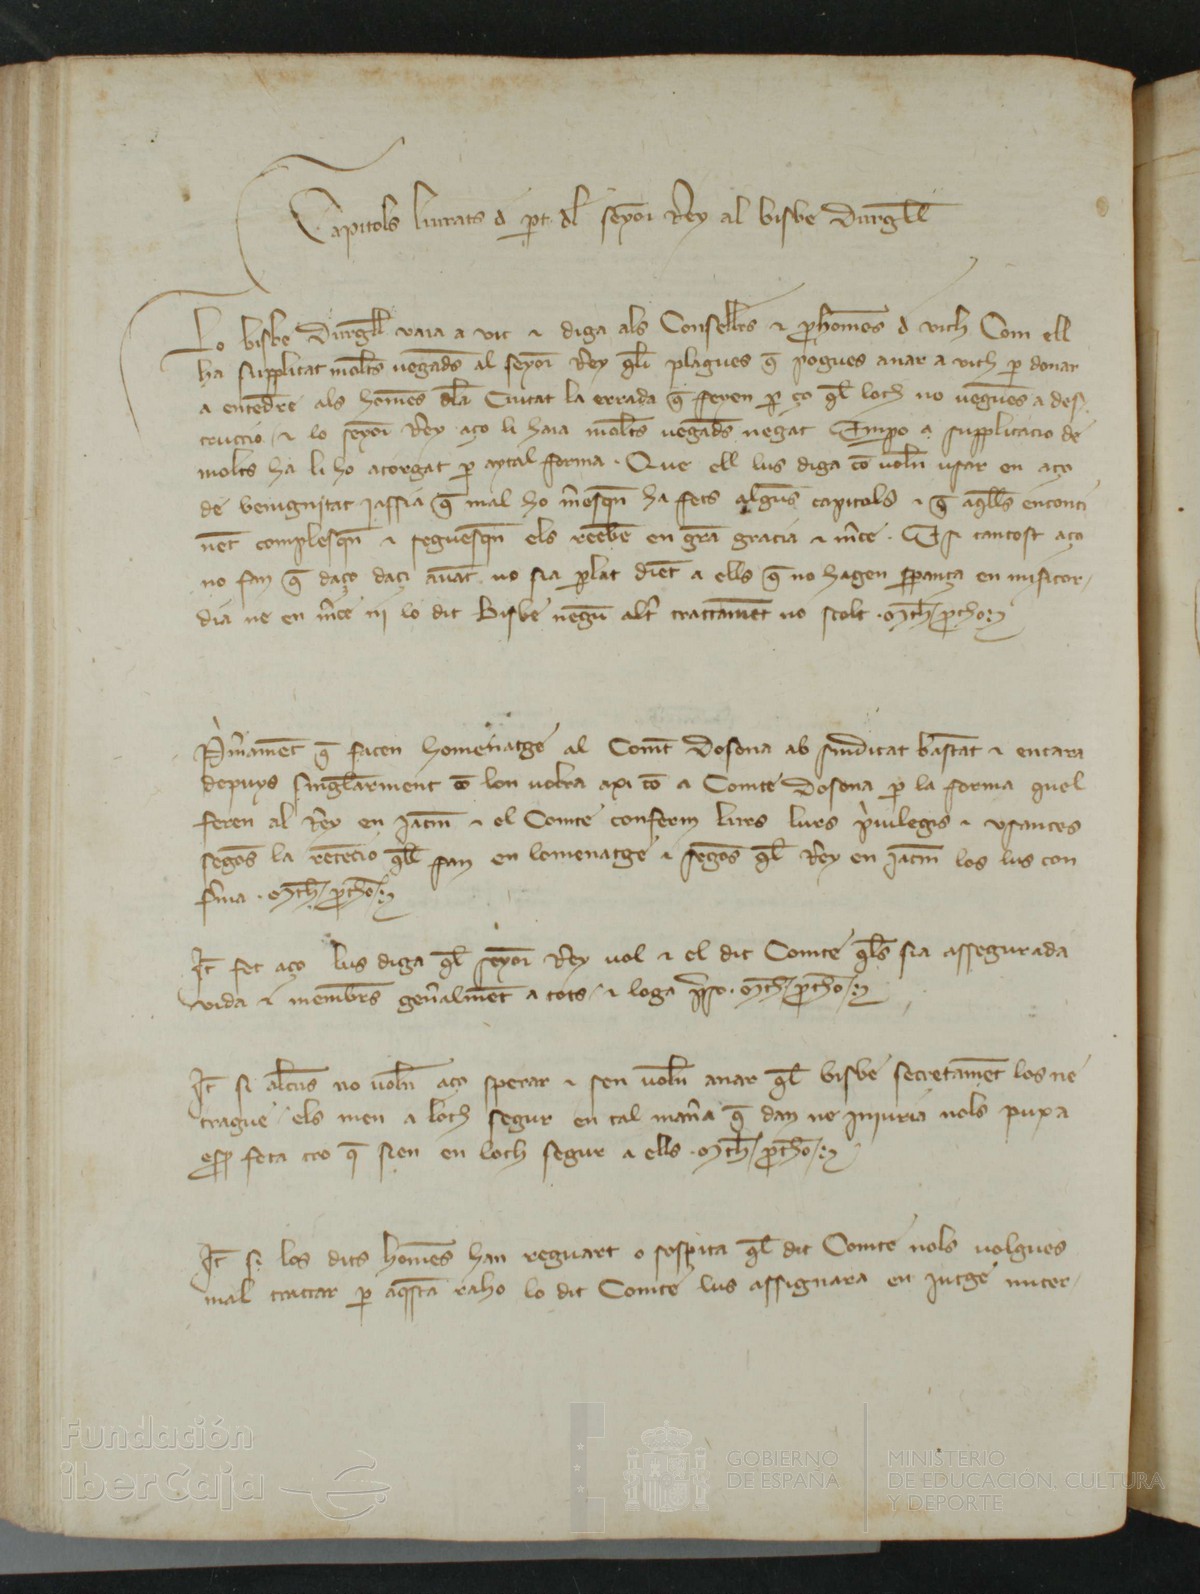 Capitols liurats d p̄t dl seyor Rey al bisbe durgell
Lo bisbe Durgell vaia a vic ⁊ diga als Conselles ⁊ ꝓhomēs d vich Com ell
ha supplicat molts vegads al seyor Rey q̄li plagues q̄ pogues anar a vich ꝑ donar
a entedre als homēs dla Ciutat la errada q̄ ffeyen ꝑ ço q̄l loch no vegues a des
truccio ⁊ lo seyor Rey aço li haia molts vegads negat Empo a supplicacio de
molts ha li ho atorgat ꝑ aytal fforma . Que ell lus diga cō voln̄ usar en aço
de benignitat jassia q̄ mal ho m̄esqn̄ ha ffets alguns capitols ⁊ q̄ aq̄lls enconti
nēt complesqn̄ ⁊ seguesqn̄ els reebe en grā gracia ⁊ m̄ce . E si tantost aço
no fan q̄ daço daçi auāt no sia ꝑlat diēt a ells q̄ no hagen sꝑança en misicor
dia ne en m̄ce ni lo dit Bisbe negū alt̄ trattamēt no scolt .
P̄mamēt q̄ facen homenatge al Comt Dosona ab sindicat bastāt ⁊ encara
depuys singlarment cō lon volra axi cō a Comte Dosona ꝑ la forma quel
feren al Rey en Jacm̄ ⁊ el Comte conferm lurs lurs p̄uilegis ⁊ usances
segōs la retēcio q̄ll fan en lomenatge ⁊ segōs q̄l Rey en Jacm̄ los lus con
f̄ma .
It̄ fet aço lus diga q̄l seyor Rey vol ⁊ el dit Comte q̄ls sia assegurada
vida ⁊ membrs gen̄almēt a tots ⁊ loga
It̄ si alcūs no voln̄ aço sperar ⁊ sen voln̄ anar q̄l bisbe secretamēt los ne
trague els men a loch segur en tal man̄a q̄ dan ne injuria nols puxa
feta tro q̄ sien en loch segur a ells .
It̄ si los dits homēs han reguart o sospita q̄l dit Comte nols volgues
mal trattar ꝑ aq̄sta raho lo dit Comte lus assignara en jutge micer
Fundación
iberCaja
GOBIERNO
DE ESPAÑA
MINISTERIO
DE EDUCACIÓN, CULTURA
Y DEPORTE